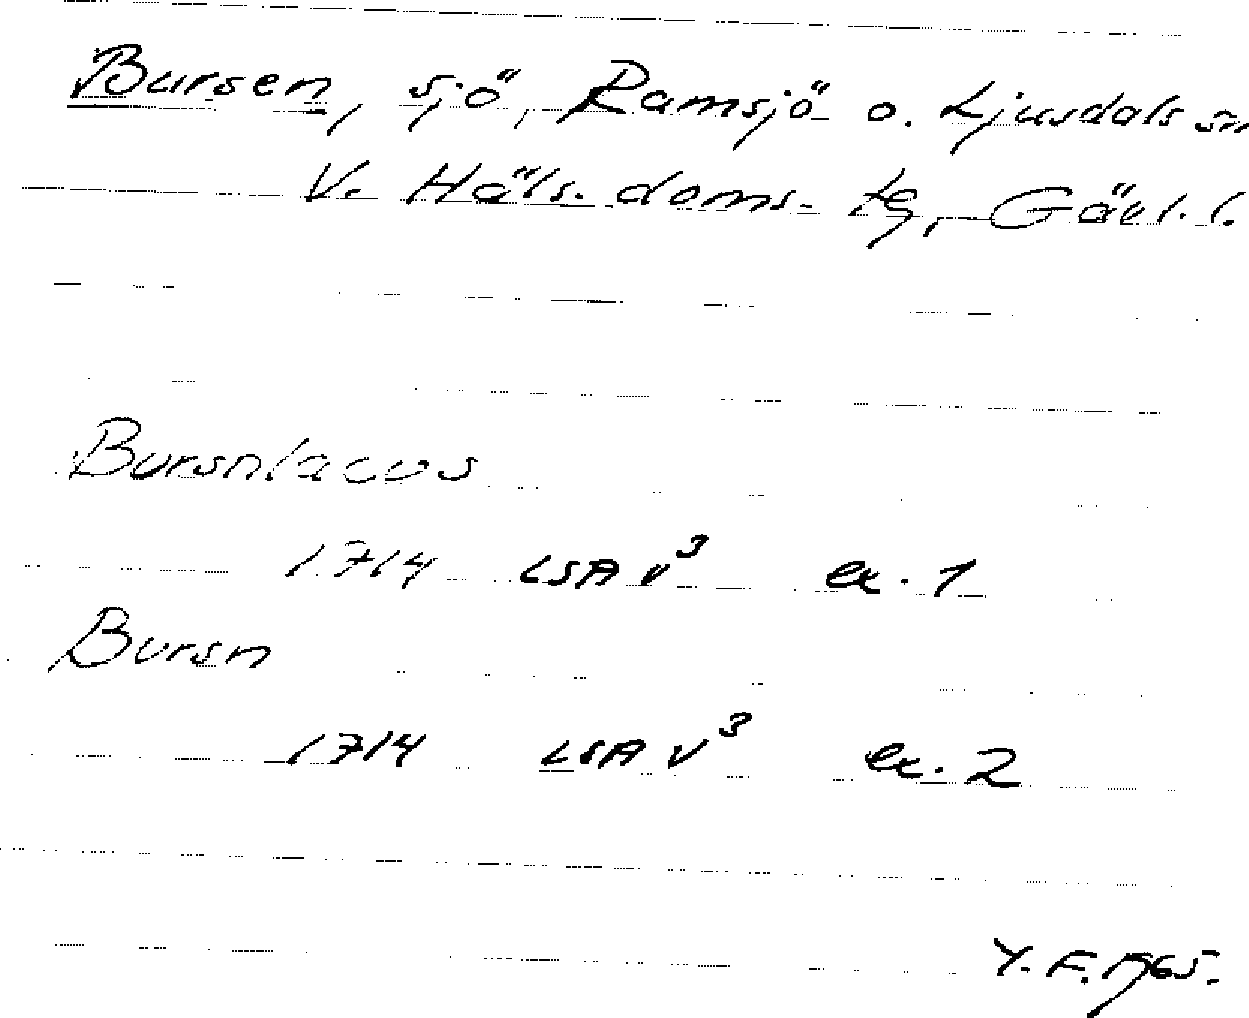 Bursen, sjö, Ramsjö o. Ljusdals sn
V. Häls. doms. tg, Gävl. l.
Bursnlacus
1714 LSA V³ ex. 1
Bursn
1714 LSA V³ ex. 2
Y. F. 1965.